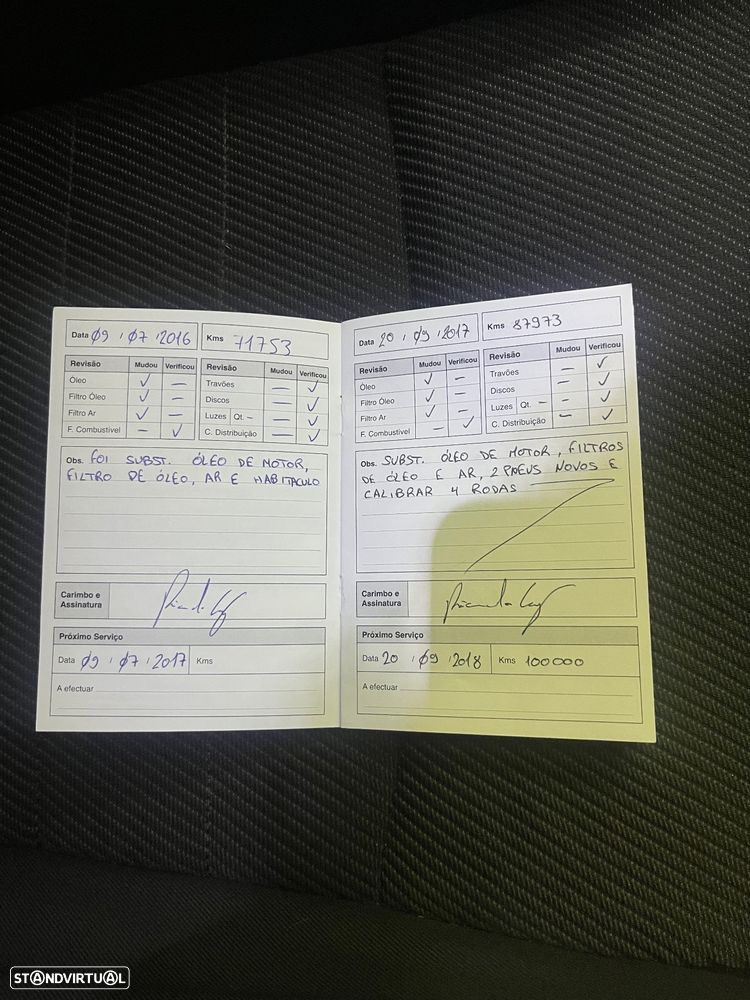 Data 09 / 07 / 2016 Kms 71753
Revisão Mudou Verificou
Óleo ✓ —
Filtro Óleo ✓ —
Filtro Ar ✓ —
F. Combustível — ✓
Revisão Mudou Verificou
Travões — ✓
Discos — ✓
Luzes Qt. — — ✓
C. Distribuição — ✓
Obs. FOI SUBST. ÓLEO DE MOTOR,
FILTRO DE ÓLEO, AR E HABITACULO
Carimbo e
Assinatura
Próximo Serviço
Data 09 / 07 / 2017 Kms
A efectuar
Data 20 / 09 / 2017 Kms 87973
Revisão Mudou Verificou
Óleo ✓ —
Filtro Óleo ✓ —
Filtro Ar ✓ —
F. Combustível — ✓
Revisão Mudou Verificou
Travões — ✓
Discos — ✓
Luzes Qt. — — ✓
C. Distribuição — ✓
Obs. SUBST. ÓLEO DE MOTOR, FILTROS
DE ÓLEO E AR, 2 PNEUS NOVOS E
CALIBRAR 4 RODAS
Carimbo e
Assinatura
Próximo Serviço
Data 20 / 09 / 2018 Kms 100000
A efectuar
STANDVIRTUAL